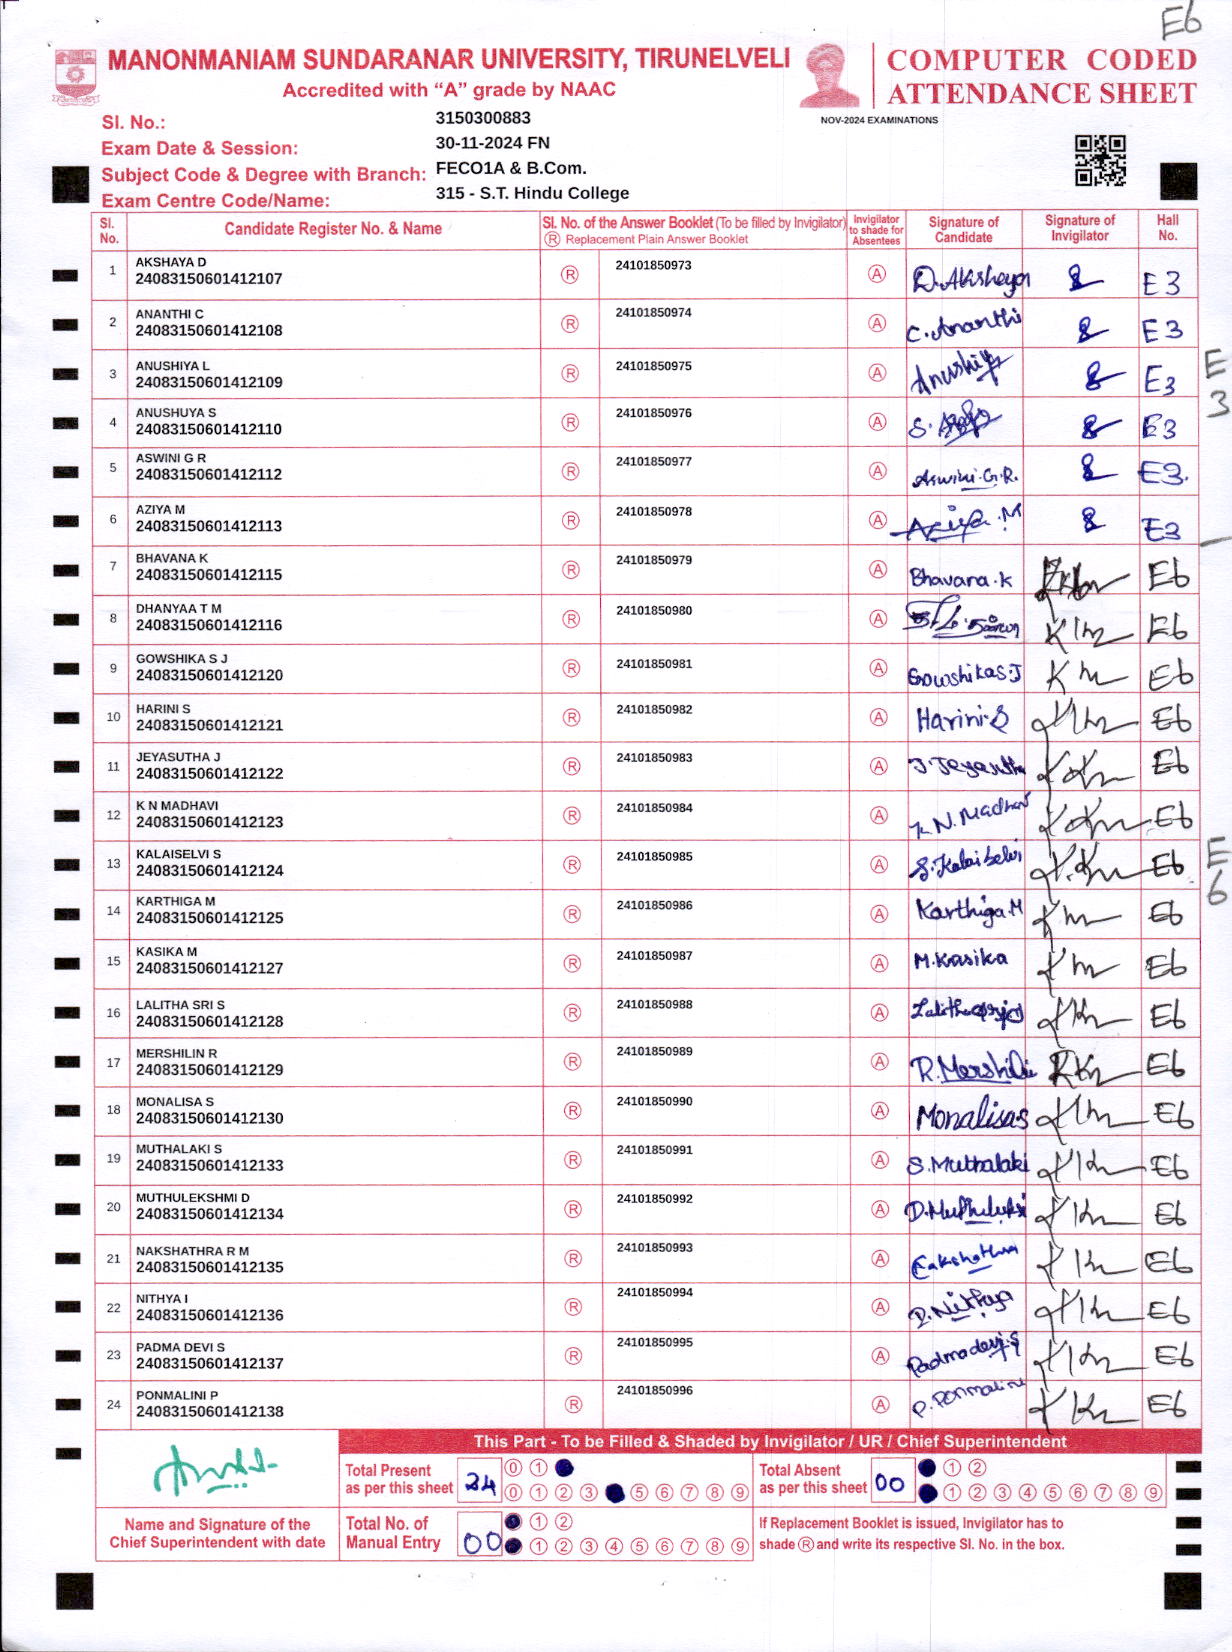 E6
MANONMANIAM SUNDARANAR UNIVERSITY, TIRUNELVELI
Accredited with “A” grade by NAAC
COMPUTER CODED
ATTENDANCE SHEET
NOV-2024 EXAMINATIONS
Sl. No.: 3150300883
Exam Date & Session: 30-11-2024 FN
Subject Code & Degree with Branch: FECO1A & B.Com.
Exam Centre Code/Name: 315 - S.T. Hindu College
Sl. No. Candidate Register No. & Name Sl. No. of the Answer Booklet (To be filled by Invigilator) Ⓡ Replacement Plain Answer Booklet Invigilator to shade for Absentees Signature of Candidate Signature of Invigilator Hall No.
1 AKSHAYA D
24083150601412107 Ⓡ 24101850973 Ⓐ D.Akshaya E3
2 ANANTHI C
24083150601412108 Ⓡ 24101850974 Ⓐ C.Ananthi E3
3 ANUSHIYA L
24083150601412109 Ⓡ 24101850975 Ⓐ E3
E
3
4 ANUSHUYA S
24083150601412110 Ⓡ 24101850976 Ⓐ E3
5 ASWINI G R
24083150601412112 Ⓡ 24101850977 Ⓐ Aswini.G.R. E3.
6 AZIYA M
24083150601412113 Ⓡ 24101850978 Ⓐ Aziya.M E3
7 BHAVANA K
24083150601412115 Ⓡ 24101850979 Ⓐ Bhavana.k E6
8 DHANYAA T M
24083150601412116 Ⓡ 24101850980 Ⓐ E6
9 GOWSHIKA S J
24083150601412120 Ⓡ 24101850981 Ⓐ GowshikaS.J E6
10 HARINI S
24083150601412121 Ⓡ 24101850982 Ⓐ Harini.S E6
11 JEYASUTHA J
24083150601412122 Ⓡ 24101850983 Ⓐ J.Jeyasutha E6
12 K N MADHAVI
24083150601412123 Ⓡ 24101850984 Ⓐ E6
13 KALAISELVI S
24083150601412124 Ⓡ 24101850985 Ⓐ S.Kalaiselvi E6
E
6
14 KARTHIGA M
24083150601412125 Ⓡ 24101850986 Ⓐ Karthiga.M E6
15 KASIKA M
24083150601412127 Ⓡ 24101850987 Ⓐ M.Kasika E6
16 LALITHA SRI S
24083150601412128 Ⓡ 24101850988 Ⓐ E6
17 MERSHILIN R
24083150601412129 Ⓡ 24101850989 Ⓐ E6
18 MONALISA S
24083150601412130 Ⓡ 24101850990 Ⓐ MonalisaS E6
19 MUTHALAKI S
24083150601412133 Ⓡ 24101850991 Ⓐ S.Muthalaki E6
20 MUTHULEKSHMI D
24083150601412134 Ⓡ 24101850992 Ⓐ E6
21 NAKSHATHRA R M
24083150601412135 Ⓡ 24101850993 Ⓐ E6
22 NITHYA I
24083150601412136 Ⓡ 24101850994 Ⓐ E6
23 PADMA DEVI S
24083150601412137 Ⓡ 24101850995 Ⓐ Padmadevi.S E6
24 PONMALINI P
24083150601412138 Ⓡ 24101850996 Ⓐ P.Ponmalini E6
This Part - To be Filled & Shaded by Invigilator / UR / Chief Superintendent
Total Present as per this sheet 24 0 1
0 1 2 3 5 6 7 8 9
Total Absent as per this sheet 00 1 2
1 2 3 4 5 6 7 8 9
Name and Signature of the
Chief Superintendent with date
Total No. of Manual Entry 00 1 2
1 2 3 4 5 6 7 8 9
If Replacement Booklet is issued, Invigilator has to
shade Ⓡ and write its respective Sl. No. in the box.